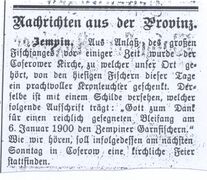 Nachrichten aus der Provinz.
Zempin. Aus Anlaß des großen
Fischfanges vor einiger Zeit wurde der
Coserower Kirche, zu welcher unser Ort ge-
hört, von den hiesigen Fischern dieser Tage
ein prachtvoller Kronleuchter geschenkt. Der-
selbe ist mit einem Schilde versehen, welcher
folgende Aufschrift trägt: „Gott zum Dank
für einen reichlich gesegneten, Bleifang am
6. Januar 1900 den Zempiner Garnfischern.“
Wie wir hören, soll infolgedessen am nächsten
Sonntag in Coserow eine kirchliche Feier
stattfinden.